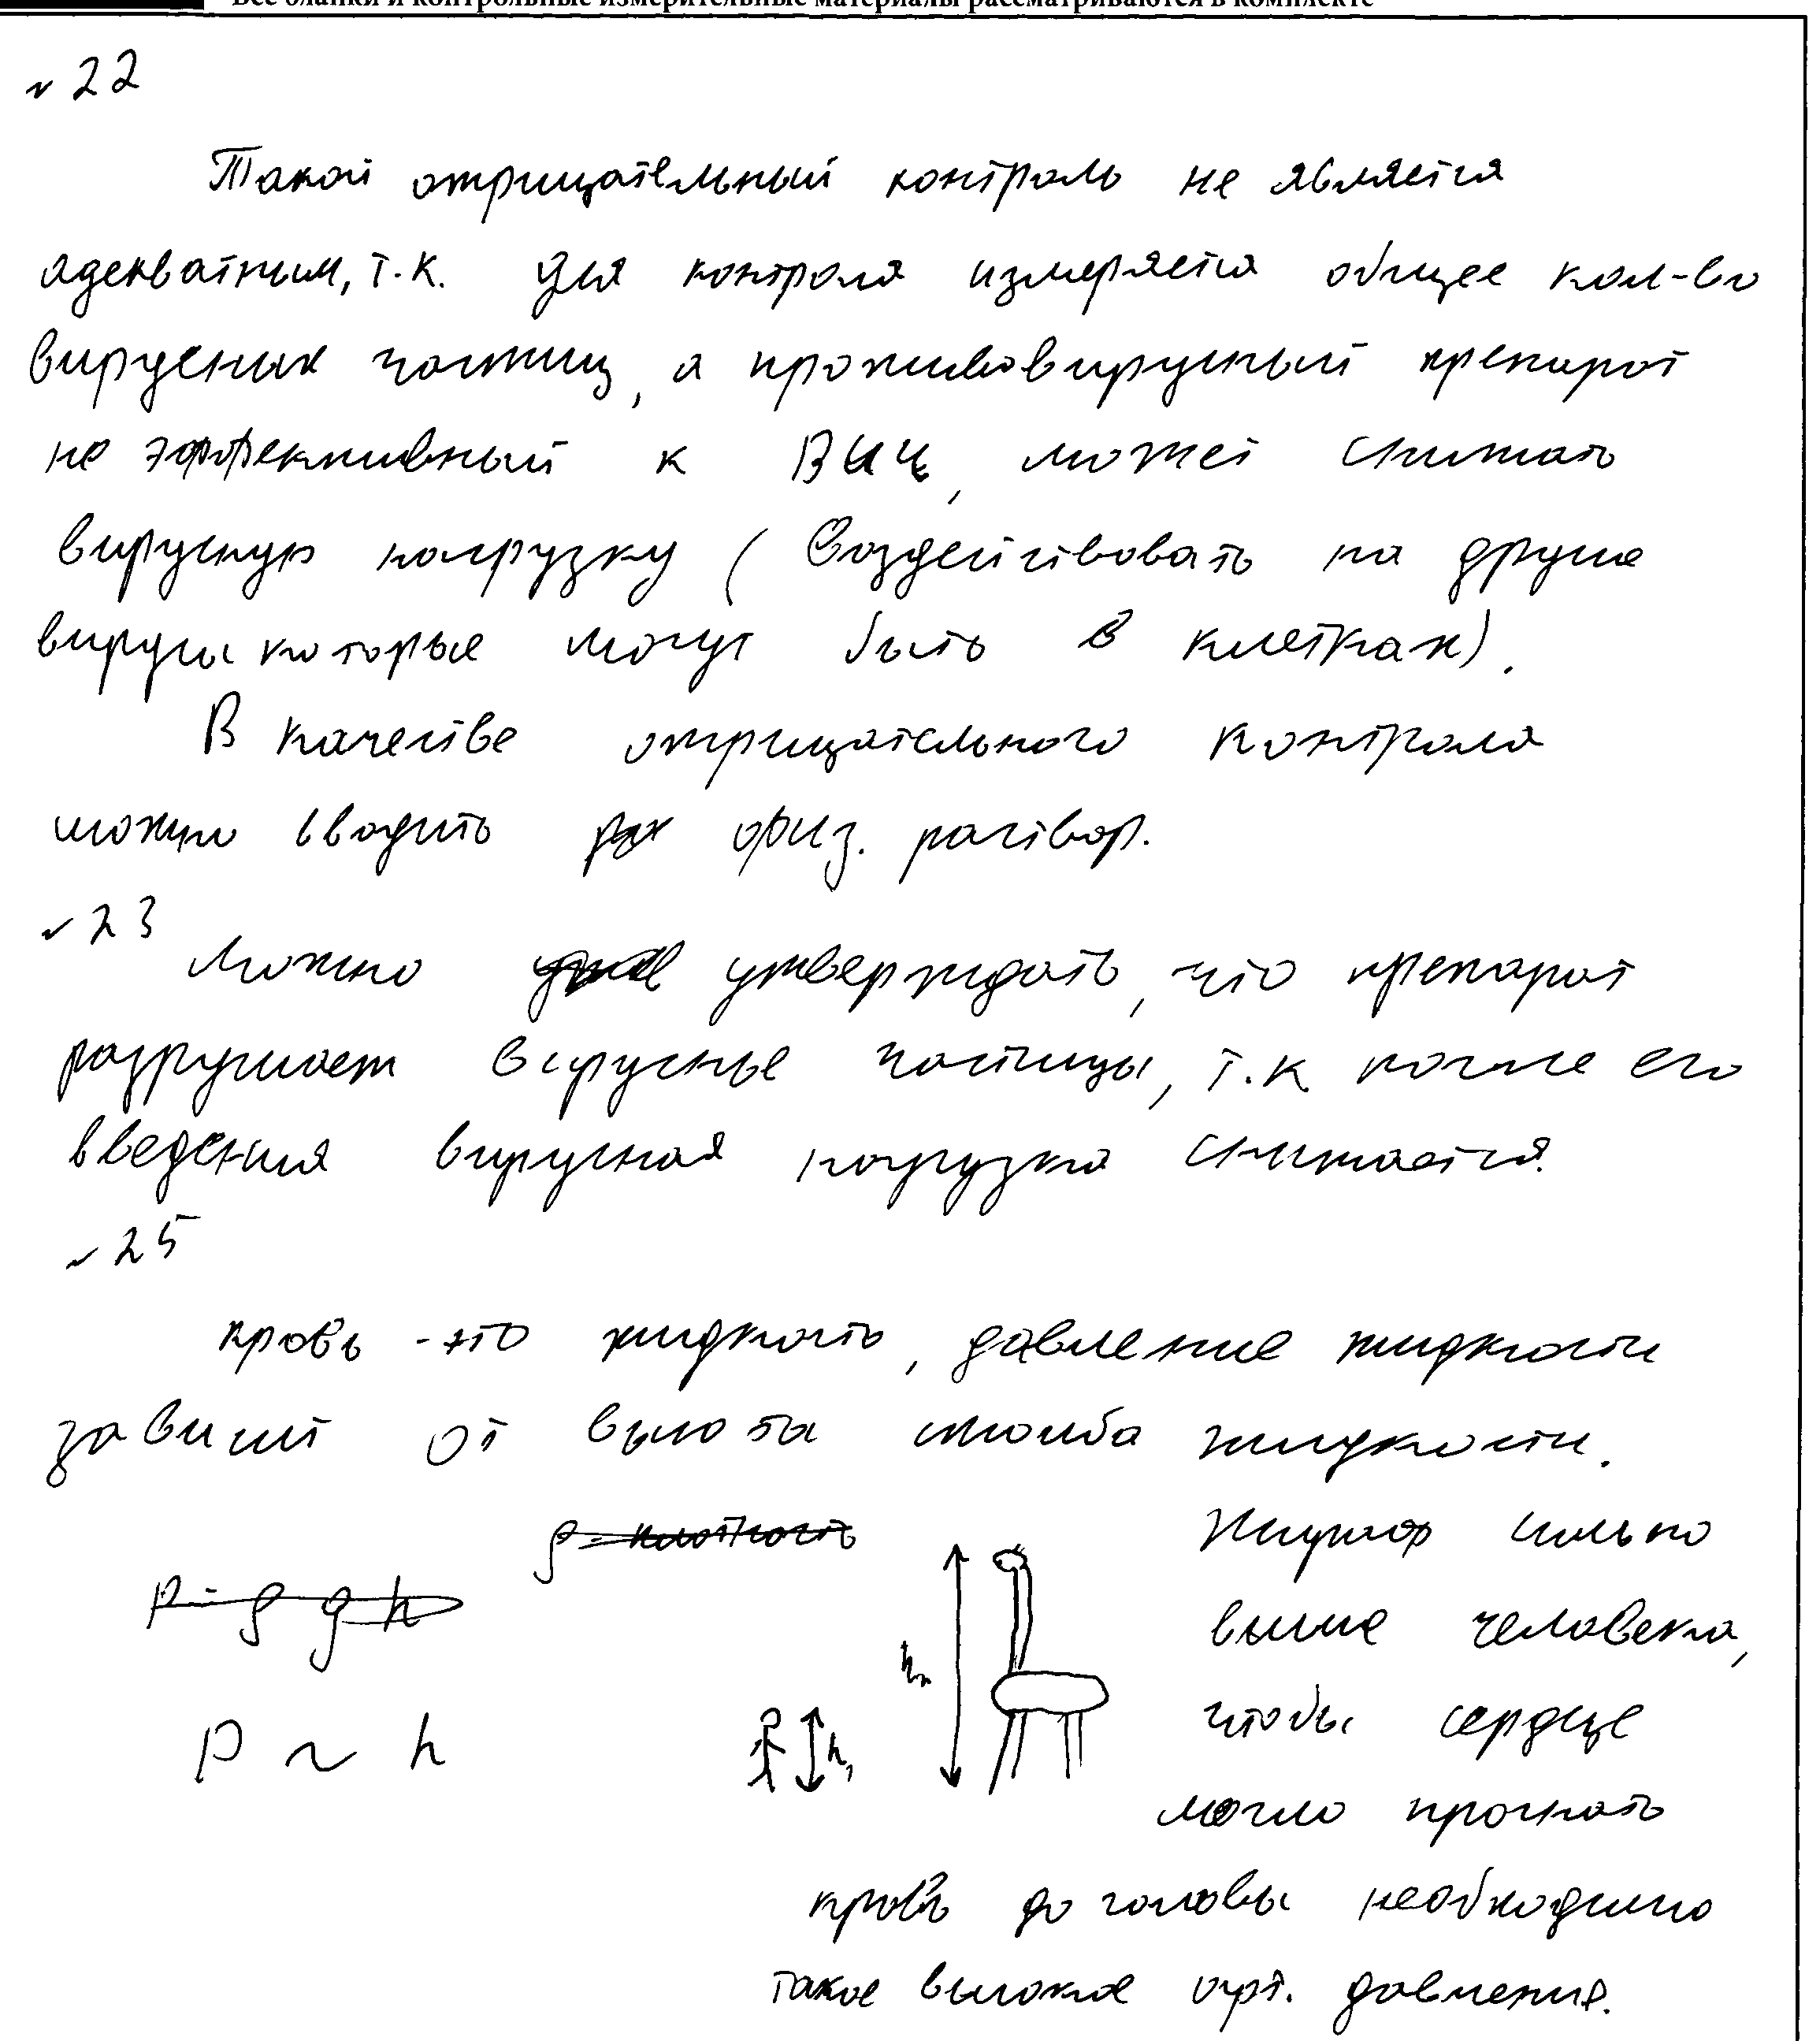 Все бланки и контрольные измерительные материалы рассматриваются в комплекте
№ 22
Такой отрицательный контроль не является
адекватным, т.к. для контроля измеряется общее кол-во
вирусных частиц, а противовирусный препарат
не эффективный к ВИЧ, может снижать
вирусную нагрузку (воздействовать на другие
вирусы которые могут быть в клетках).
В качестве отрицательного контроля
можно вводить физ. раствор.
№ 23
Можно утверждать, что препарат
разрушает вирусные частицы, т.к после его
введения вирусная нагрузка снижается.
№ 25
кровь - это жидкость, давление жидкости
зависит от высоты столба жидкости.
ρ - плотность
p = ρ g h
P ~ h
h₁
h₂
Жираф сильно
выше человека,
чтобы сердце
могло прогнать
кровь до головы необходимо
такое высокое арт. давление.